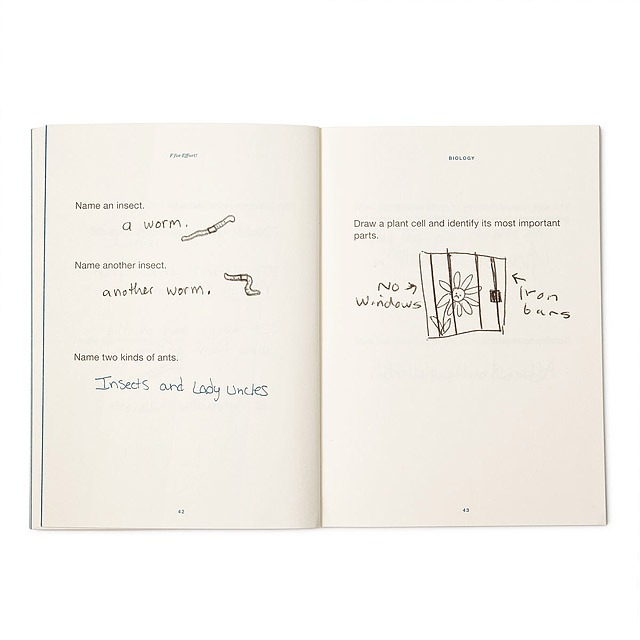 F for Effort!
Name an insect.
a worm.
Name another insect.
another worm.
Name two kinds of ants.
Insects and Lady Uncles
42
BIOLOGY
Draw a plant cell and identify its most important
parts.
No
windows
Iron
bars
43